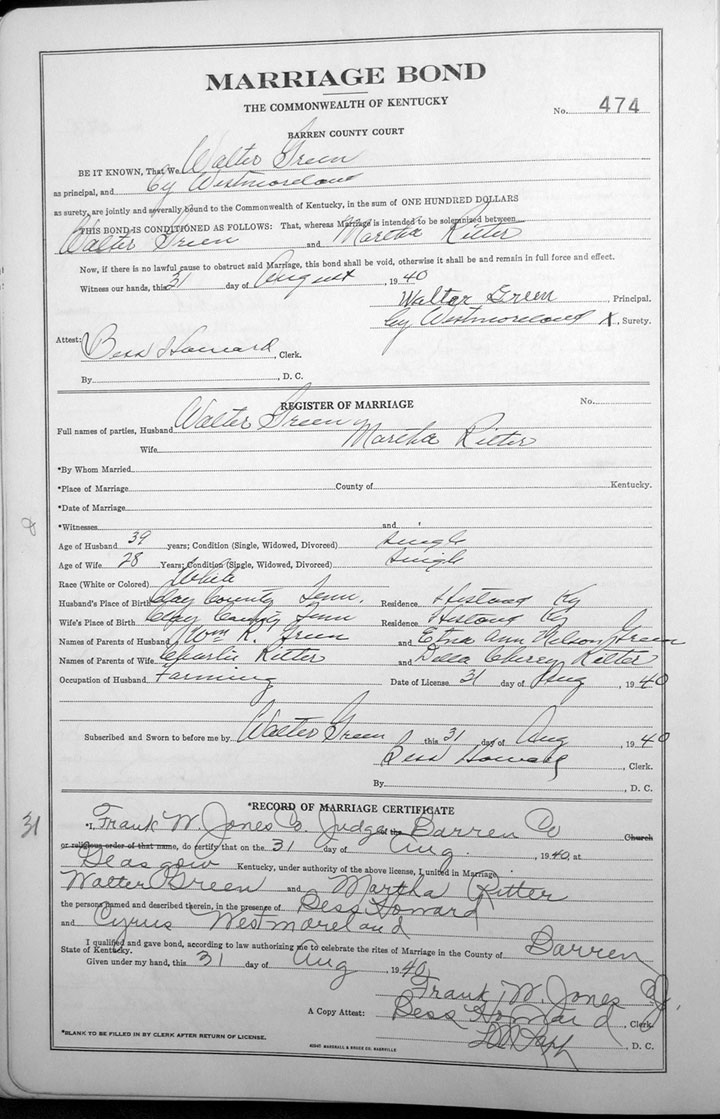 MARRIAGE BOND
THE COMMONWEALTH OF KENTUCKY
No. 474
BARREN COUNTY COURT
BE IT KNOWN, That We Walter Green
as principal, and Cy Westmoreland
as surety, are jointly and severally bound to the Commonwealth of Kentucky, in the sum of ONE HUNDRED DOLLARS
THIS BOND IS CONDITIONED AS FOLLOWS: That, whereas Marriage is intended to be solemnized between
Walter Green and Martha Ritter
Now, if there is no lawful cause to obstruct said Marriage, this bond shall be void, otherwise it shall be and remain in full force and effect.
Witness our hands, this 31 day of August, 1940
Walter Green, Principal.
Cy Westmoreland X, Surety.
Attest:
Bess Howard, Clerk.
By, D. C.
REGISTER OF MARRIAGE
No.
Full names of parties, Husband Walter Green
Wife Martha Ritter
*By Whom Married
*Place of Marriage County of Kentucky.
*Date of Marriage
*Witnesses and
Age of Husband 39 years; Condition (Single, Widowed, Divorced) single
Age of Wife 28 Years; Condition (Single, Widowed, Divorced) Single
Race (White or Colored) White
Husband's Place of Birth Clay County Tenn. Residence Ky
Wife's Place of Birth Clay County Tenn Residence Ky
Names of Parents of Husband Wm K. Green and Ann Nelson Green
Names of Parents of Wife Charlie Ritter and Della Ritter
Occupation of Husband Farming Date of License 31 day of Aug 1940
Subscribed and Sworn to before me by Walter Green this 31 day of Aug 1940
Bess Howard, Clerk.
By, D. C.
31
*RECORD OF MARRIAGE CERTIFICATE
*I, Frank W. Jones Co. Judge of the Barren Co Church
or religious order of that name, do certify that on the 31 day of Aug. 1940, at
Glasgow Kentucky, under authority of the above license, I united in Marriage
Walter Green and Martha Ritter
the persons named and described therein, in the presence of Bess Howard
and Cyrus Westmoreland
I qualified and gave bond, according to law authorizing me to celebrate the rites of Marriage in the County of Barren
State of Kentucky.
Given under my hand, this 31 day of Aug 1940
Frank W. Jones C.J.
A Copy Attest: Bess Howard, Clerk.
D. C.
*BLANK TO BE FILLED IN BY CLERK AFTER RETURN OF LICENSE.
MARSHALL & BRUCE CO. NASHVILLE